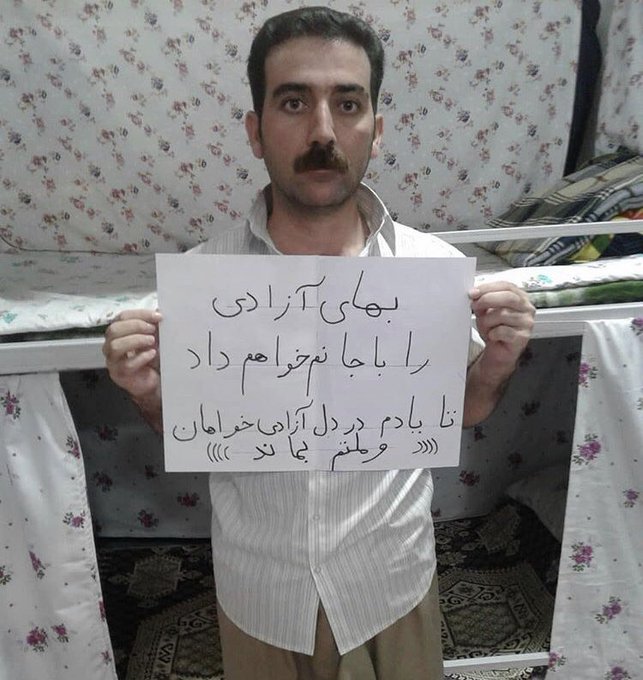 بهای آزادی
را با جانم خواهم داد
تا یادم در دل آزادی خواهان
)))) وطنم بماند ((((